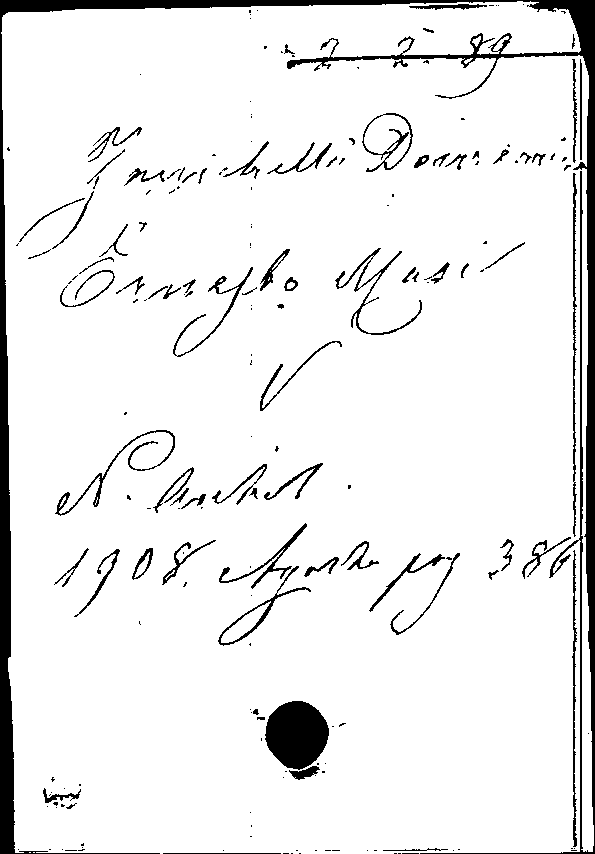 2. 2. 89
Zanichelli Domenico
Ernesto Masi
V
N. Antol.
1908. Agosto pag 386